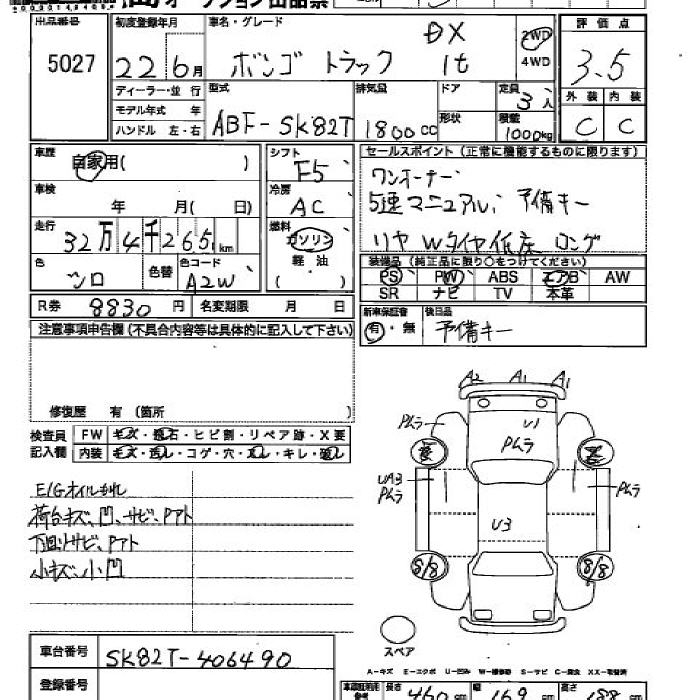 オークション出品票
出品番号
5027
初度登録年月
22年6月
車名・グレード
ボンゴ トラック
DX
1t
2WD
4WD
評価点
3.5
外装 内装
C C
ディーラー・並行
モデル年式 年
ハンドル 左・右
型式
ABF-SK82T
排気量
1800cc
ドア
形状
定員
3人
積載
1000kg
車歴
自家用( )
車検
年 月( 日)
走行
32万4千265km
色
シロ
色替
色コード
A2W
シフト
F5
冷房
AC
燃料
ガソリン
軽油
( )
セールスポイント(正常に機能するものに限ります)
ワンオーナー
5速マニュアル、予備キー
リヤWタイヤ低床 ロング
装備品(純正品に限り○をつけてください)
PS PW ABS エアB AW
SR ナビ TV 本革
R券 8830円 名変期限 月 日
新車保証書
有・無
後日品
予備キー
注意事項申告欄(不具合内容等は具体的に記入して下さい)
修復歴 有(箇所
検査員記入欄
FW キズ・飛石・ヒビ割・リペア跡・X要
内装
E/Gオイルもれ
荷台キズ、凹、サビ、Pアト
下回りサビ、Pアト
小キズ、小凹
A2 A1 A1
Pムラ
U1
Pムラ
UA3
Pムラ
Pムラ
U3
8/8
8/8
スペア
車台番号
SK82T-406490
登録番号
長さ
460cm
幅
169cm
高さ
188cm